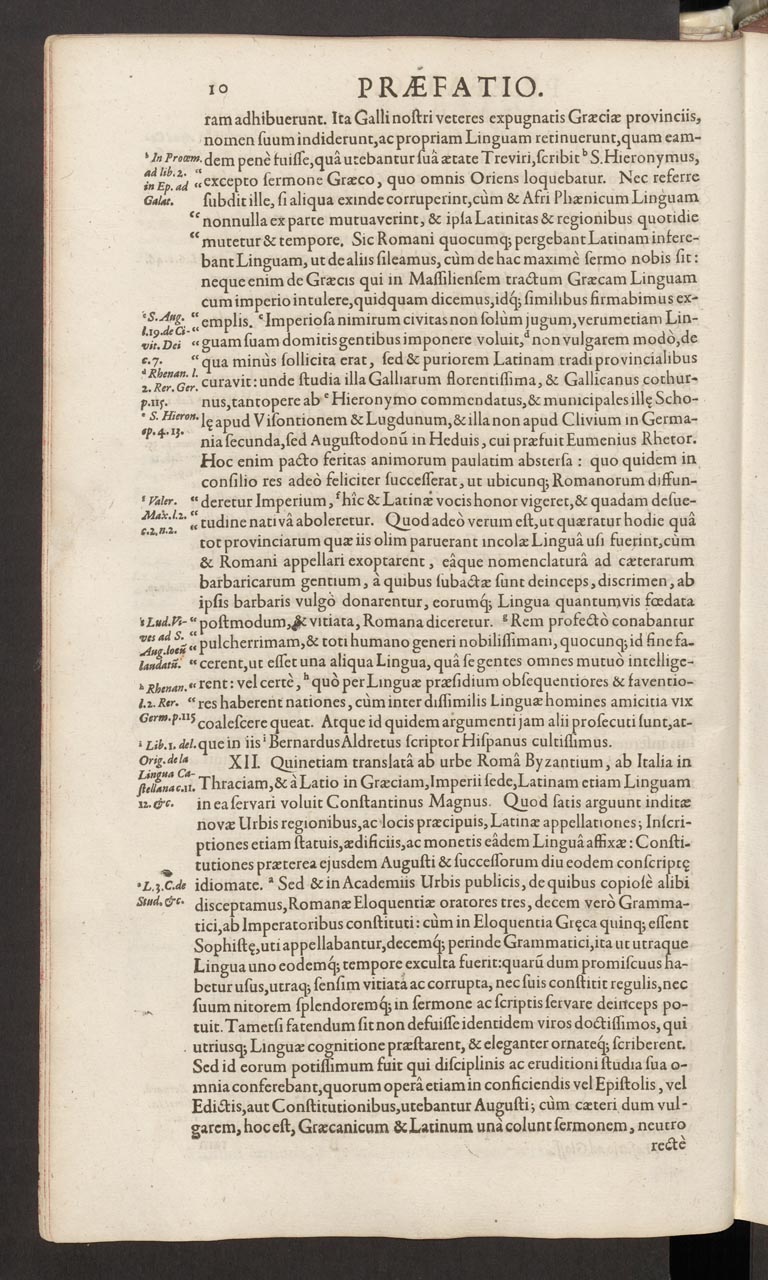 10 PRÆFATIO.
ram adhibuerunt. Ita Galli noſtri veteres expugnatis Græciæ provinciis,
nomen ſuum indiderunt, ac propriam Linguam retinuerunt, quam eam-
dem penè fuiſſe, quâ utebantur ſuâ ætate Treviri, ſcribit ᵇ S. Hieronymus,
“ excepto ſermone Græco, quo omnis Oriens loquebatur. Nec referre
ſubdit ille, ſi aliqua exinde corruperint, cùm & Afri Phænicum Linguam
“ nonnulla ex parte mutuaverint, & ipſa Latinitas & regionibus quotidie
“ mutetur & tempore. Sic Romani quocumq; pergebant Latinam infere-
bant Linguam, ut de aliis ſileamus, cùm de hac maximè ſermo nobis ſit:
neque enim de Græcis qui in Maſſilienſem tractum Græcam Linguam
cum imperio intulere, quidquam dicemus, idq́; ſimilibus firmabimus ex-
“ emplis. ᶜ Imperioſa nimirum civitas non ſolùm jugum, verumetiam Lin-
“ guam ſuam domitis gentibus imponere voluit, ᵈ non vulgarem modò, de
“ qua minùs ſollicita erat, ſed & puriorem Latinam tradi provincialibus
curavit: unde ſtudia illa Galliarum florentiſſima, & Gallicanus cothur-
nus, tantopere ab ᵉ Hieronymo commendatus, & municipales illę Scho-
lę apud Viſontionem & Lugdunum, & illa non apud Clivium in Germa-
nia ſecunda, ſed Auguſtodonū in Heduis, cui præfuit Eumenius Rhetor.
Hoc enim pacto feritas animorum paulatim abſterſa: quo quidem in
conſilio res adeò feliciter ſucceſſerat, ut ubicunq; Romanorum diffun-
“ deretur Imperium, ᶠ hîc & Latinæ vocis honor vigeret, & quadam deſue-
“ tudine nativâ aboleretur. Quod adeò verum eſt, ut quæratur hodie quâ
tot provinciarum quæ iis olim paruerant incolæ Linguâ uſi fuerint, cùm
& Romani appellari exoptarent, eâque nomenclaturâ ad cæterarum
barbaricarum gentium, à quibus ſubactæ ſunt deinceps, diſcrimen, ab
ipſis barbaris vulgò donarentur, eorumq́; Lingua quantumvis fœdata
“ poſtmodum, & vitiata, Romana diceretur. ᵍ Rem profectò conabantur
“ pulcherrimam, & toti humano generi nobiliſſimam, quocunq; id fine fa-
“ cerent, ut eſſet una aliqua Lingua, quâ ſe gentes omnes mutuò intellige-
“ rent: vel certè, ʰ quò per Linguæ præſidium obſequentiores & faventio-
“ res haberent nationes, cùm inter diſſimilis Linguæ homines amicitia vix
coaleſcere queat. Atque id quidem argumenti jam alii proſecuti ſunt, at-
que in iis ⁱ Bernardus Aldretus ſcriptor Hiſpanus cultiſſimus.
XII. Quinetiam translatâ ab urbe Româ Byzantium, ab Italia in
Thraciam, & à Latio in Græciam, Imperii ſede, Latinam etiam Linguam
in ea ſervari voluit Conſtantinus Magnus. Quod ſatis arguunt inditæ
novæ Urbis regionibus, ac locis præcipuis, Latinæ appellationes; Inſcri-
ptiones etiam ſtatuis, ædificiis, ac monetis eâdem Linguâ affixæ: Conſti-
tutiones præterea ejusdem Auguſti & ſucceſſorum diu eodem conſcriptę
idiomate. ᵃ Sed & in Academiis Urbis publicis, de quibus copioſè alibi
disceptamus, Romanæ Eloquentiæ oratores tres, decem verò Gramma-
tici, ab Imperatoribus conſtituti: cùm in Eloquentia Gręca quinq; eſſent
Sophiſtę, uti appellabantur, decemq́; perinde Grammatici, ita ut utraque
Lingua uno eodemq́; tempore exculta fuerit: quarū dum promiſcuus ha-
betur uſus, utraq; ſenſim vitiata ac corrupta, nec ſuis conſtitit regulis, nec
ſuum nitorem ſplendoremq́; in ſermone ac ſcriptis ſervare deinceps po-
tuit. Tametſi fatendum ſit non defuiſſe identidem viros doctiſſimos, qui
utriusq; Linguæ cognitione præſtarent, & eleganter ornateq́; ſcriberent.
Sed id eorum potiſſimum fuit qui diſciplinis ac eruditioni ſtudia ſua o-
mnia conferebant, quorum operâ etiam in conficiendis vel Epiſtolis, vel
Edictis, aut Conſtitutionibus, utebantur Auguſti; cùm cæteri dum vul-
garem, hoc eſt, Græcanicum & Latinum unà colunt ſermonem, neutro
rectè
ᵇ In Proœm.
ad lib. 2.
in Ep. ad
Galat.
ᶜ S. Aug.
l. 19. de Ci-
vit. Dei
c. 7.
ᵈ Rhenan. l.
2. Rer. Ger.
p. 115.
ᵉ S. Hieron.
ep. 4. 13.
ᶠ Valer.
Max. l. 2.
c. 2. n. 2.
ᵍ Lud. Vi-
ves ad S.
Aug. locū
laudatū.
ʰ Rhenan.
l. 2. Rer.
Germ. p. 115
ⁱ Lib. 1. del
Orig. de la
Lingua Ca-
ſtellana c. 11.
12. &c.
ᵃ L. 3. C. de
Stud. &c.